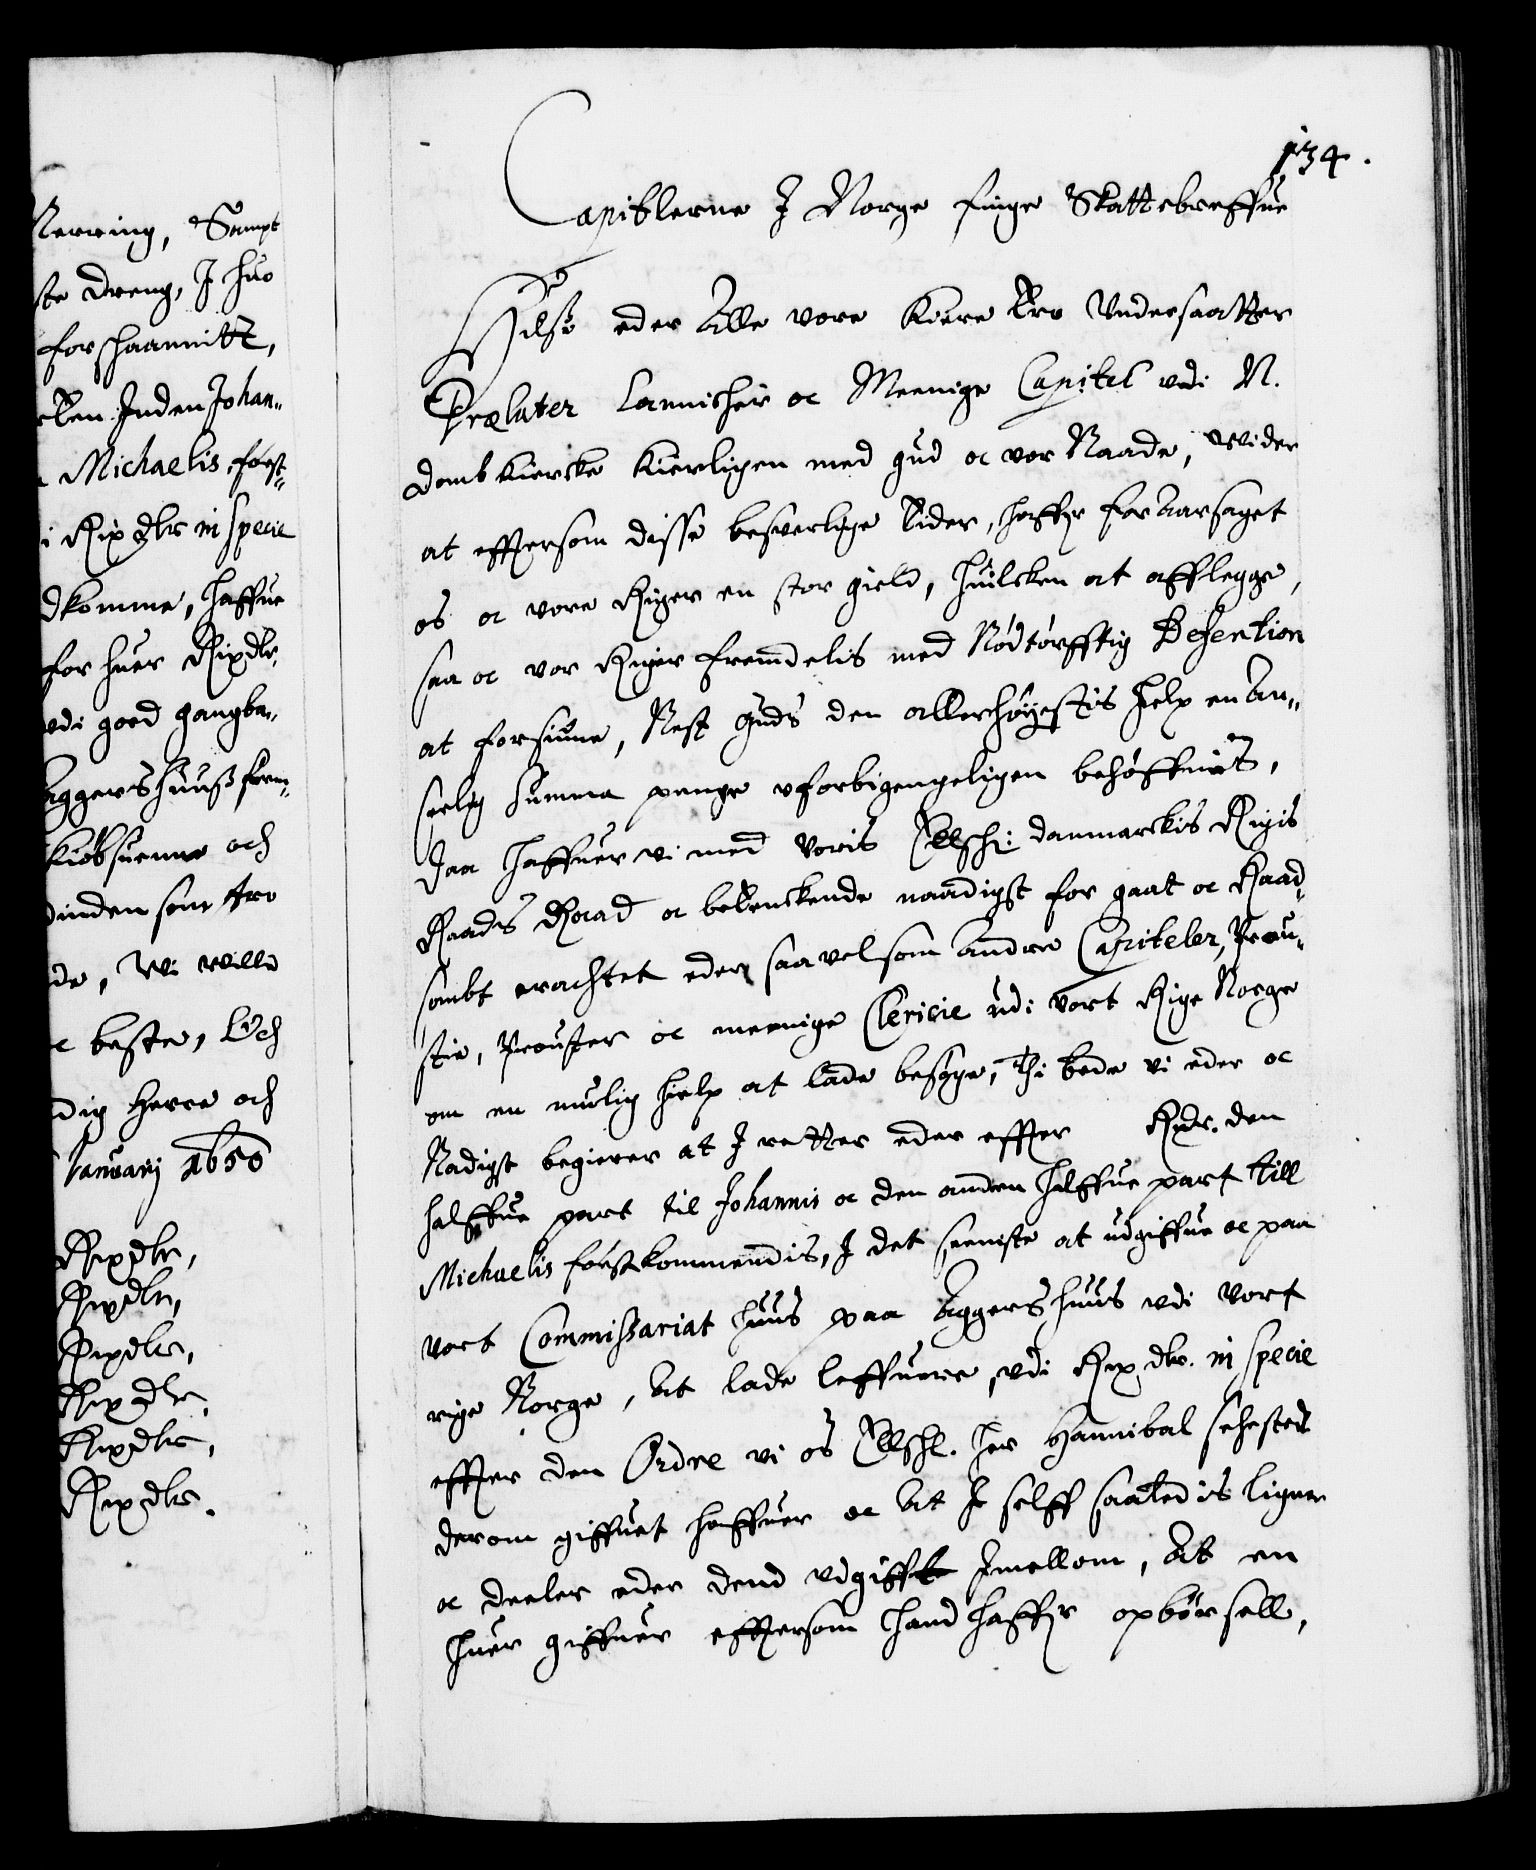 Nerring, Sampt
ste dreng, J huo
forschaannitt,
Inden Johan-
Michaelis, först-
i Rixdlr in specie
dkomme, haffue
for huer Rixdlr,
vdi goed gangba-
Aggershuuß frem-
Kiöbsuenne och
dinden som tro
de, Wi wille
beste, Och
dig Herre och
Januarij 1650
Rixdlr,
Rixdlr,
Rixdlr,
Rixdlr,
Rixdlr,
Rixdlr.
134.
Capitlerne J Norge finge Skattebreffue
Hilse eder Alle vore Kiere tro Vndersaatter
Prælater Cannicher oc Meenige Capitel vdi N.
domb Kiercke Kierligen med gud oc vor Naade, Wider
at effterson disse besverlige tider, haffr foraarsaget
os oc vore Riger en stor gield, huilcken at afflegge,
saa oc vor Riger fremdelis med Nödtörfftig Defention
at forsiune, Nest Guds den allerhöyestis hielp en An-
seelig Summa penge vforbigengeligen behöffuis,
Daa haffuer vi med Voris Elschl: danmarckis Rigis
Raads Raad oc betenckende naadigst for gaat oc Raad-
sombt erachtet eder saavelsom andre Capiteler, Prou-
stie, Prouster oc meenige Clericie udi vort Rige Norge
om en mulig hielp at lade besöge, Thi bede vi eder oc
Nadigst begierer at J retter eder effter Rixdr. den
halffue part til Johannis oc den anden halffue part till
Michaelis förstkommendis, J det seeniste at udgiffue oc paa
vort Commissariat huus paa Aggershuus vdi Vort
rige Norge, At lade leffuere, vdi Rixdlr. in specie
effter den Ordre vi os Elschl. Her Hannibal Sehested
derom giffuet haffuer oc At J selff saaledis ligner
oc deeler eder dend vdgifft Jmellom, At en
huer giffuer effterson hand haffr opbörsell,